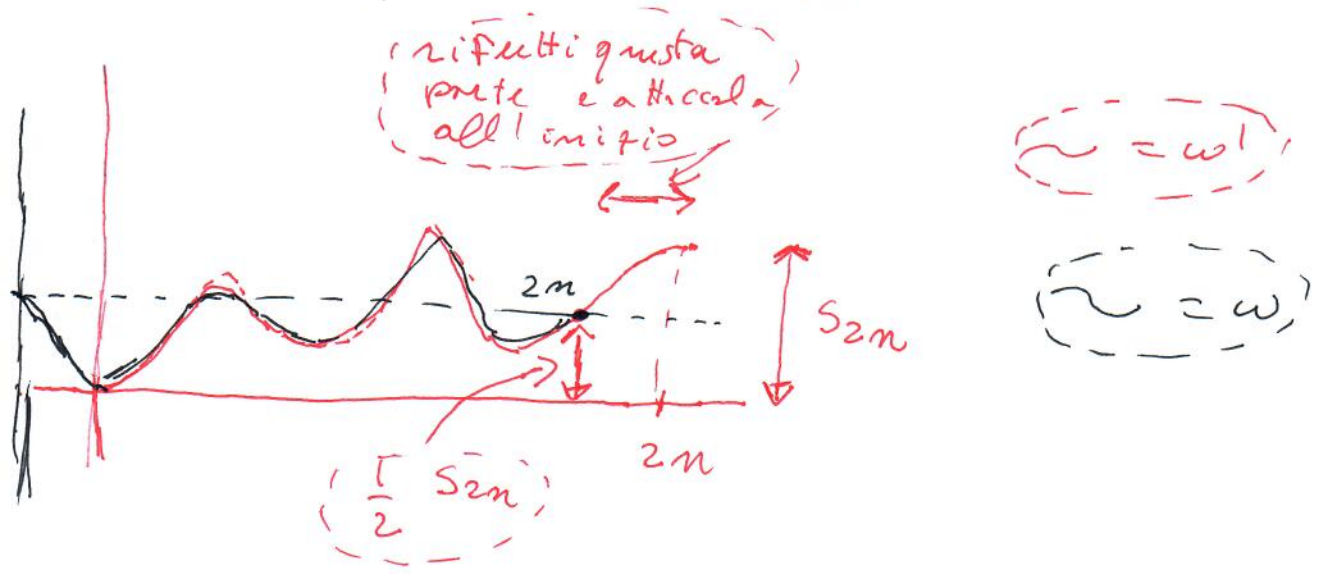 rifletti questa
parte e attaccala
all'inizio
~ = ω'
~ = ω
2n
S2n
2n
1/2 S2n